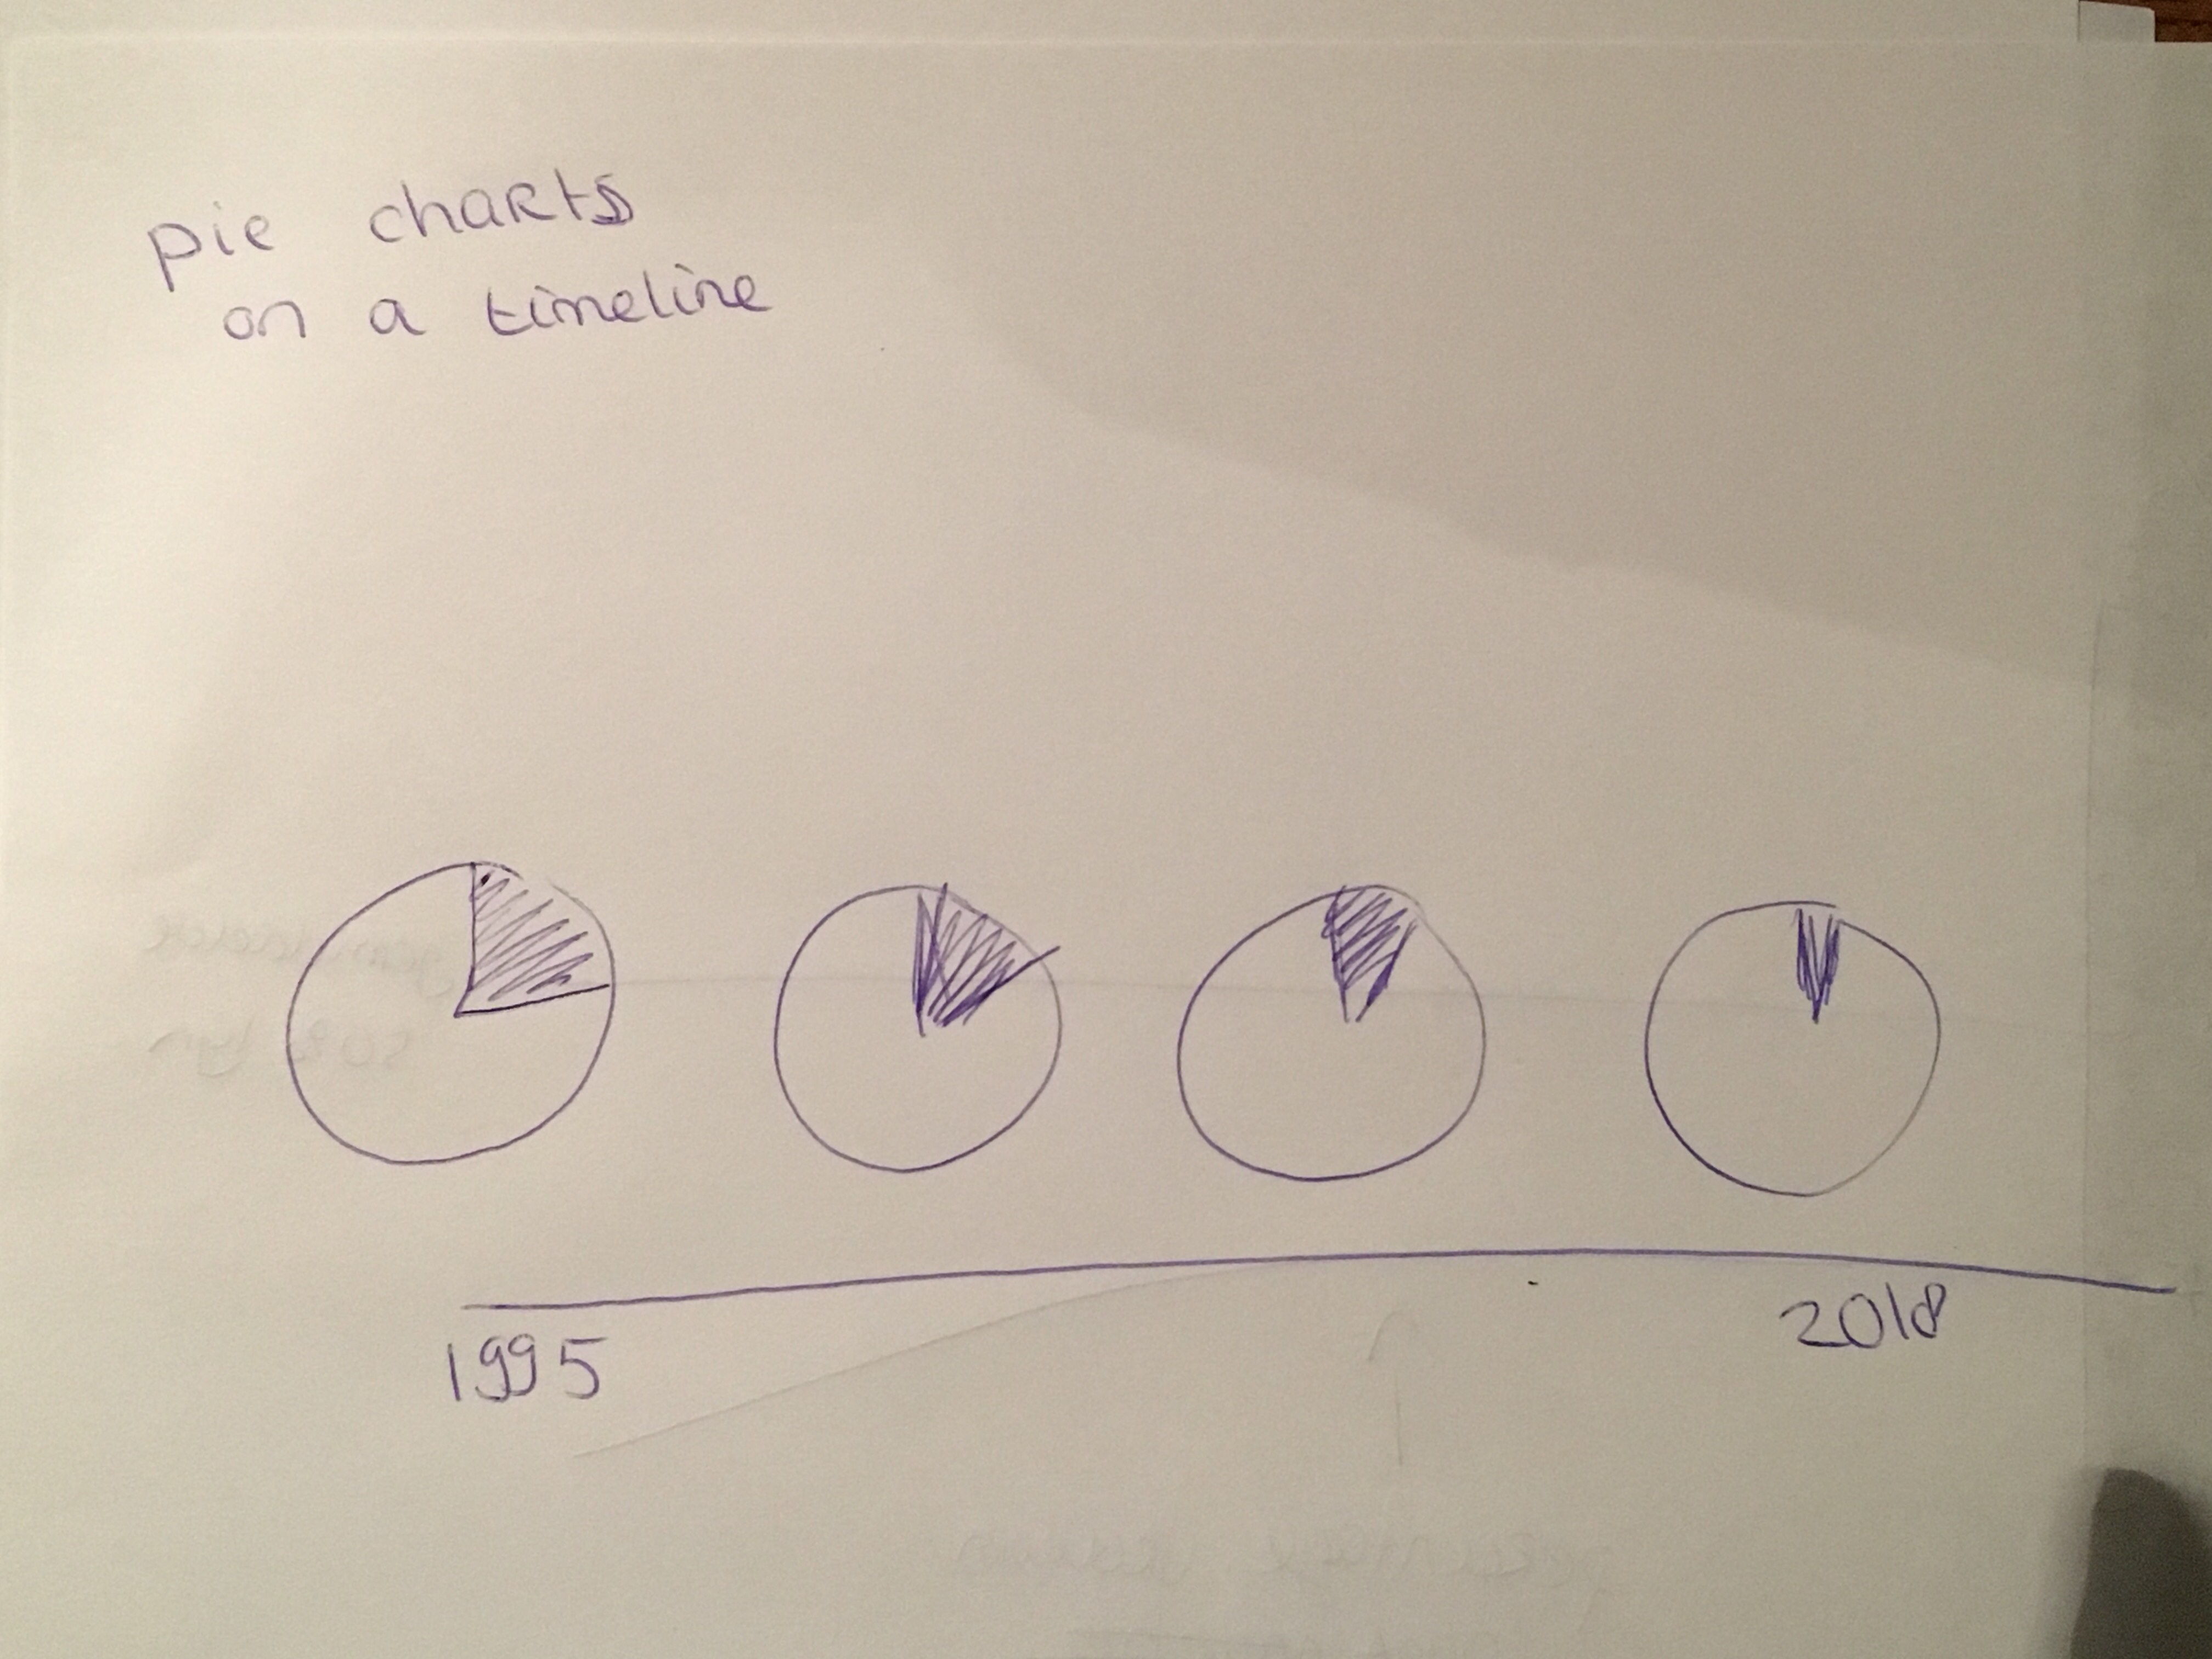 pie charts
on a timeline
1995
2018